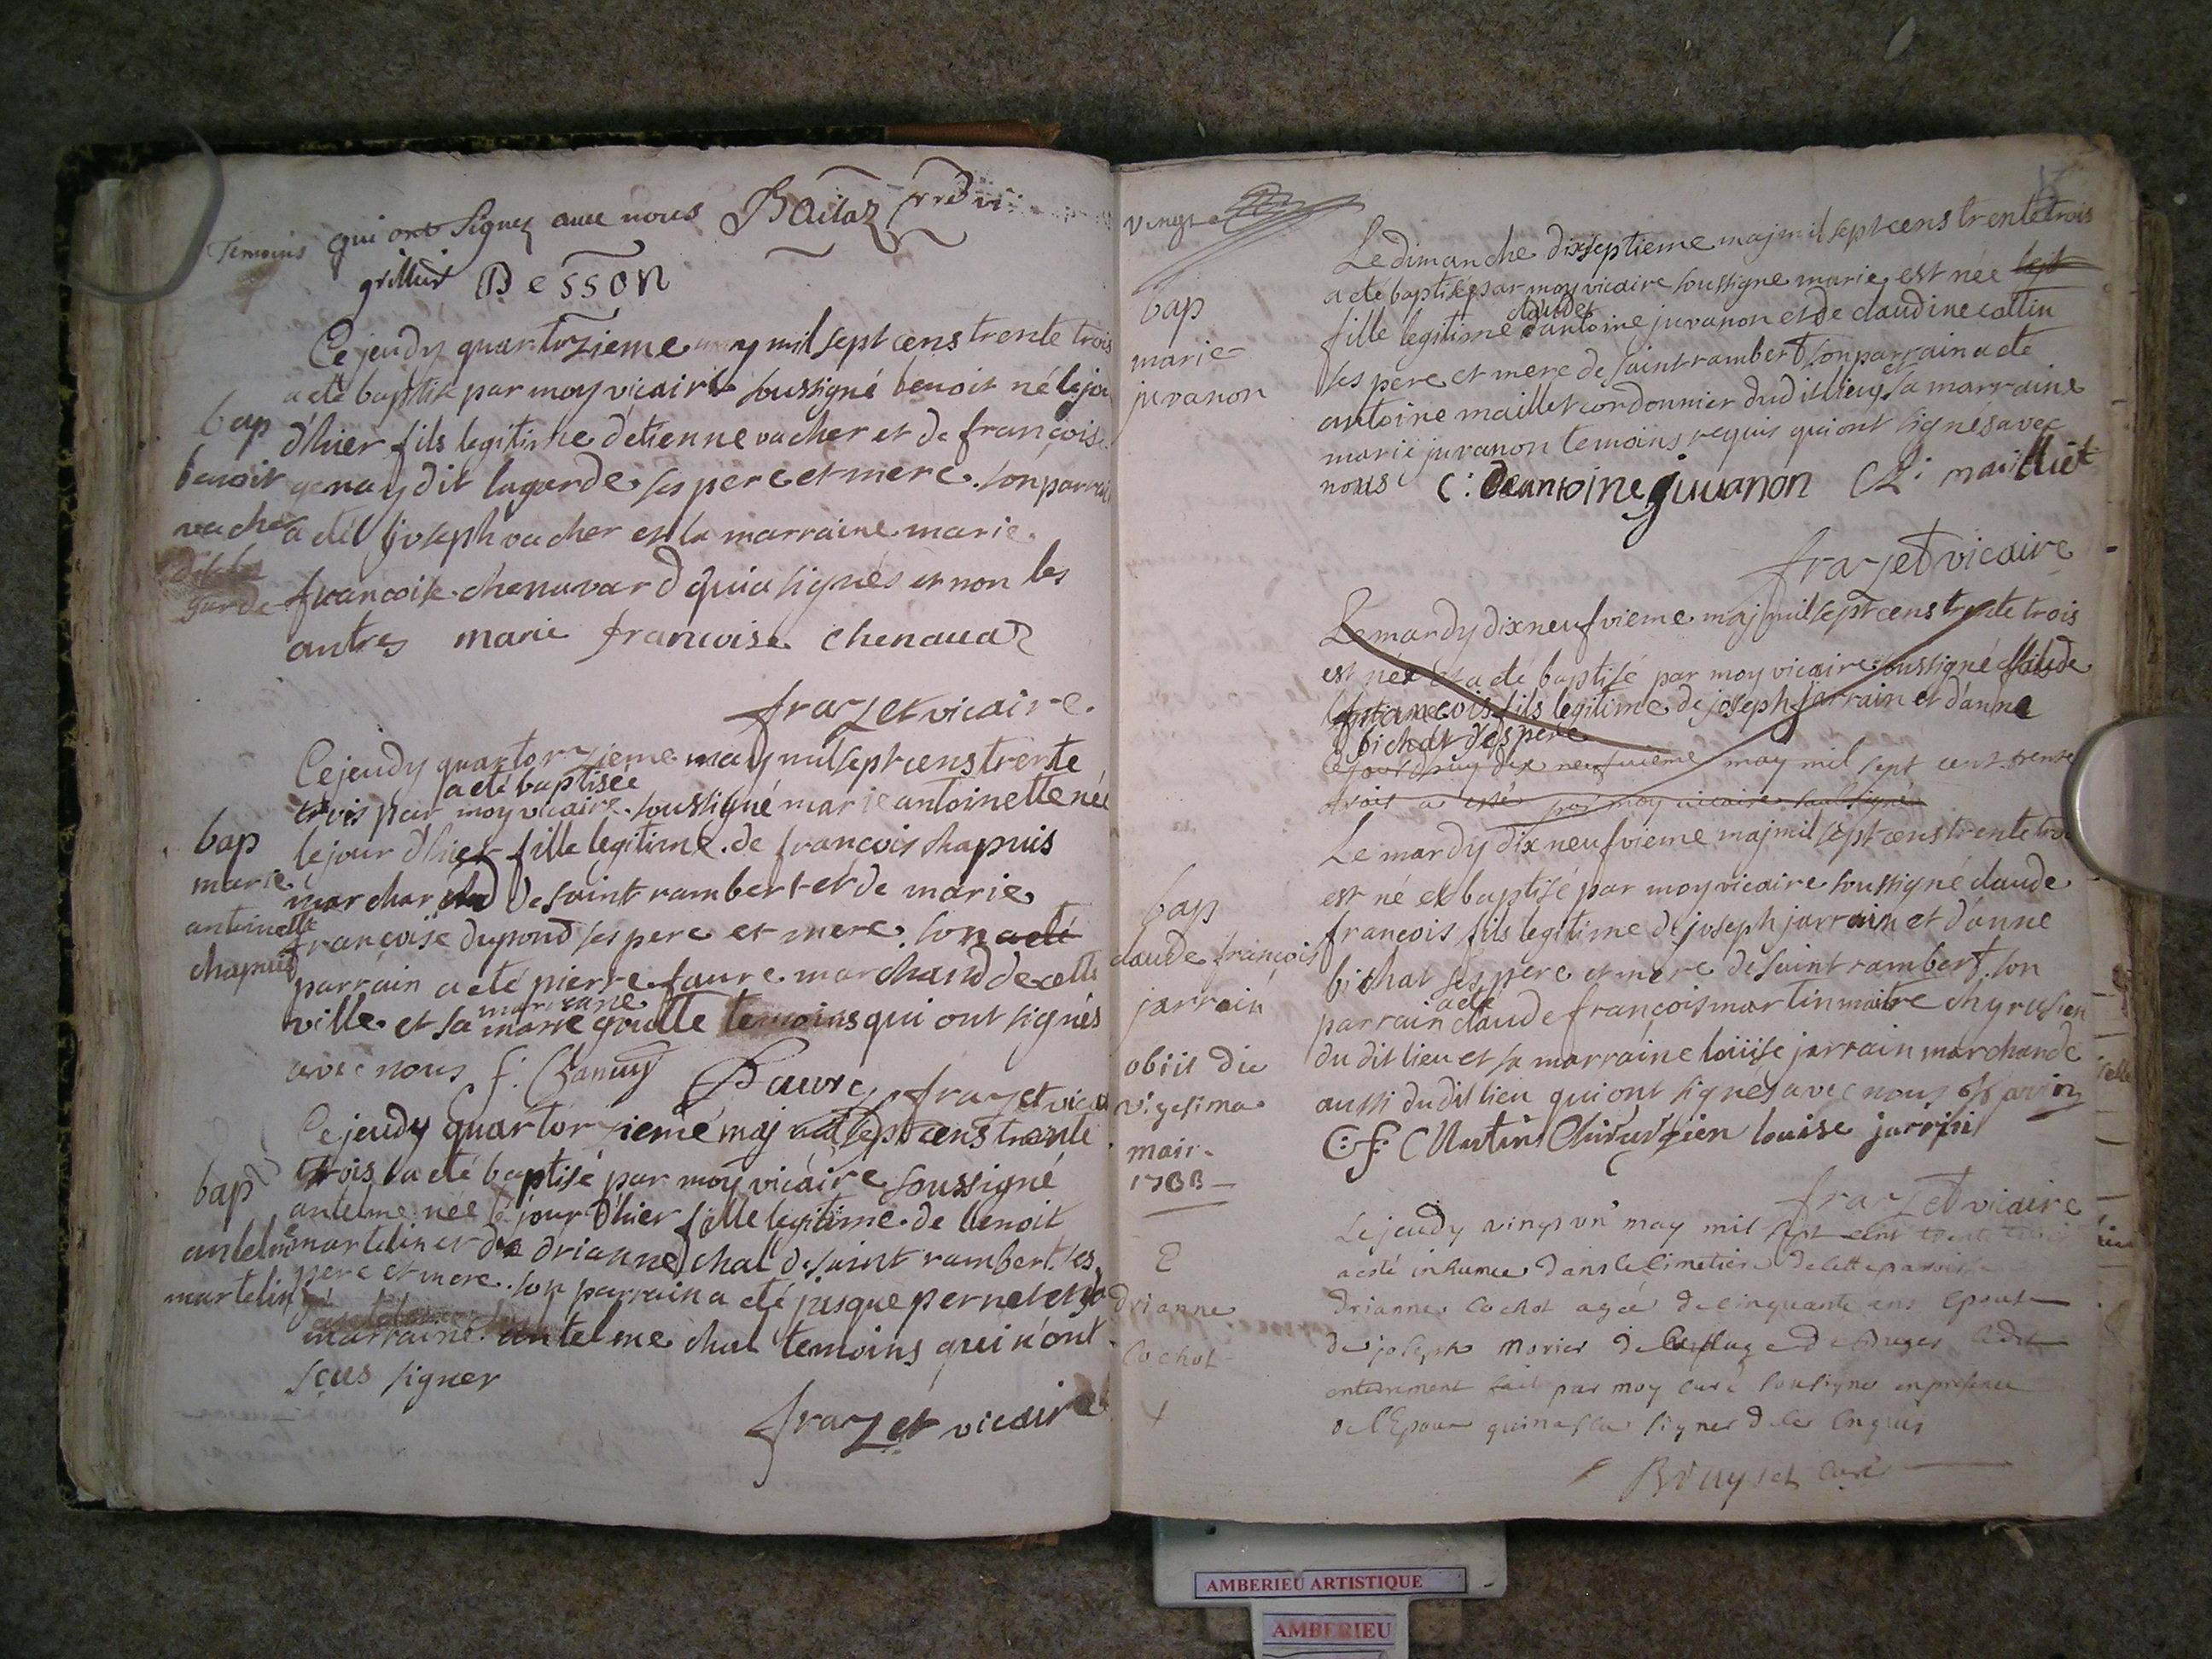 Temoins qui ont signez avec nous Bailaz
grillier Besson
Ce jeudy quartorzieme may mil sept cens trente trois
a eté baptisé par moy vicaire soussigné benoit né le jou
bap
benoit
vacher
dit la
garde
d'hier fils legitime d'etienne vacher et de françoise
genay dit lagarde ses pere et mere. son parrai
a été joseph vacher et la marraine marie
francoise chenavard qui a signés et non les
autres marie francoise chenauar
frazet vicaire.
Ce jeudy quartorzieme may mil sept cens trente
a eté baptisée
trois par moy vicaire soussigné marie antoinette née
bap
marie
antoinette
chapuis
le jour d'hier fille legitime de francois chapuis
marchand de saint rambert et de marie
françoise dupond ses pere et mere. son a eté
parrain a eté pierre faure marchand de cette
marraine
ville et sa marre goutte temoins qui ont signés
avec nous f. Chapuy Faure frazet vica
Ce jeudy quartorzieme maj mil sept cens trente
trois a eté baptisé par moy vicaire soussigné
bap
antelme
martelin
antelme née le jour d'hier fille legitime de benoit
martelin et de drianne chal de saint rambert ses
pere et mere. son parrain a eté jasque pernet et sa
marraine antelme chal temoins qui n'ont
sçus signer
frazet vicaire
vingt
Le dimanche dixseptieme maj mil sept cens trente trois
bap
marie
juvanon
a eté baptisé par moy vicaire soussigné marie est née sept
claude
fille legitime d'antoine juvanon et de claudine collin
ses pere et mere de saint rambert son parrain a eté
antoine maillet cordonnier dud it lieu et sa marraine
marie juvanon temoins requis qui ont signés avec
nous C: deantoine juuanon mailliet
frazet vicaire
Le mardy dixneufvieme maj mil sept cens trente trois
est nee et a eté baptisé par moy vicaire soussigné claude
francois fils legitime de joseph jarrain et d'anne
bichat ses pere
le jourdhuy dix neufuieme may mil sept cent trente
trois a esté par moy vicaire soussigné
Le mardy dixneufvieme maj mil sept cens trente troi
bap
claude françois
jarrain
obiit die
vigesima
maii
1733
est né et baptisé par moy vicaire soussigné claude
francois fils legitime de joseph jarrain et d'anne
bichat ses pere et mere de saint rambert. son
a eté
parrain claude francois martin maitre chyrusien
du dit lieu et sa marraine loüise jarrain marchande
aussi du dit lieu qui ont signés avec nous jarrin
C: f: Martin Chirurgien louise jarrin
frazet vicaire
Le jeudy vingt un may mil sept cent trente trois
E
drianne
Cochot
+
a esté inhumee dans le cimetiere de cette paroisse
drianne Cochot agée de cinquante ens Epouse
de joseph Morier de Buges ledit
enterrement fait par moy curé soussigné en presence
de l'Epoux qui na sceu signer de ce enquis
Bruyset curé
AMBERIEU ARTISTIQUE
AMBERIEU